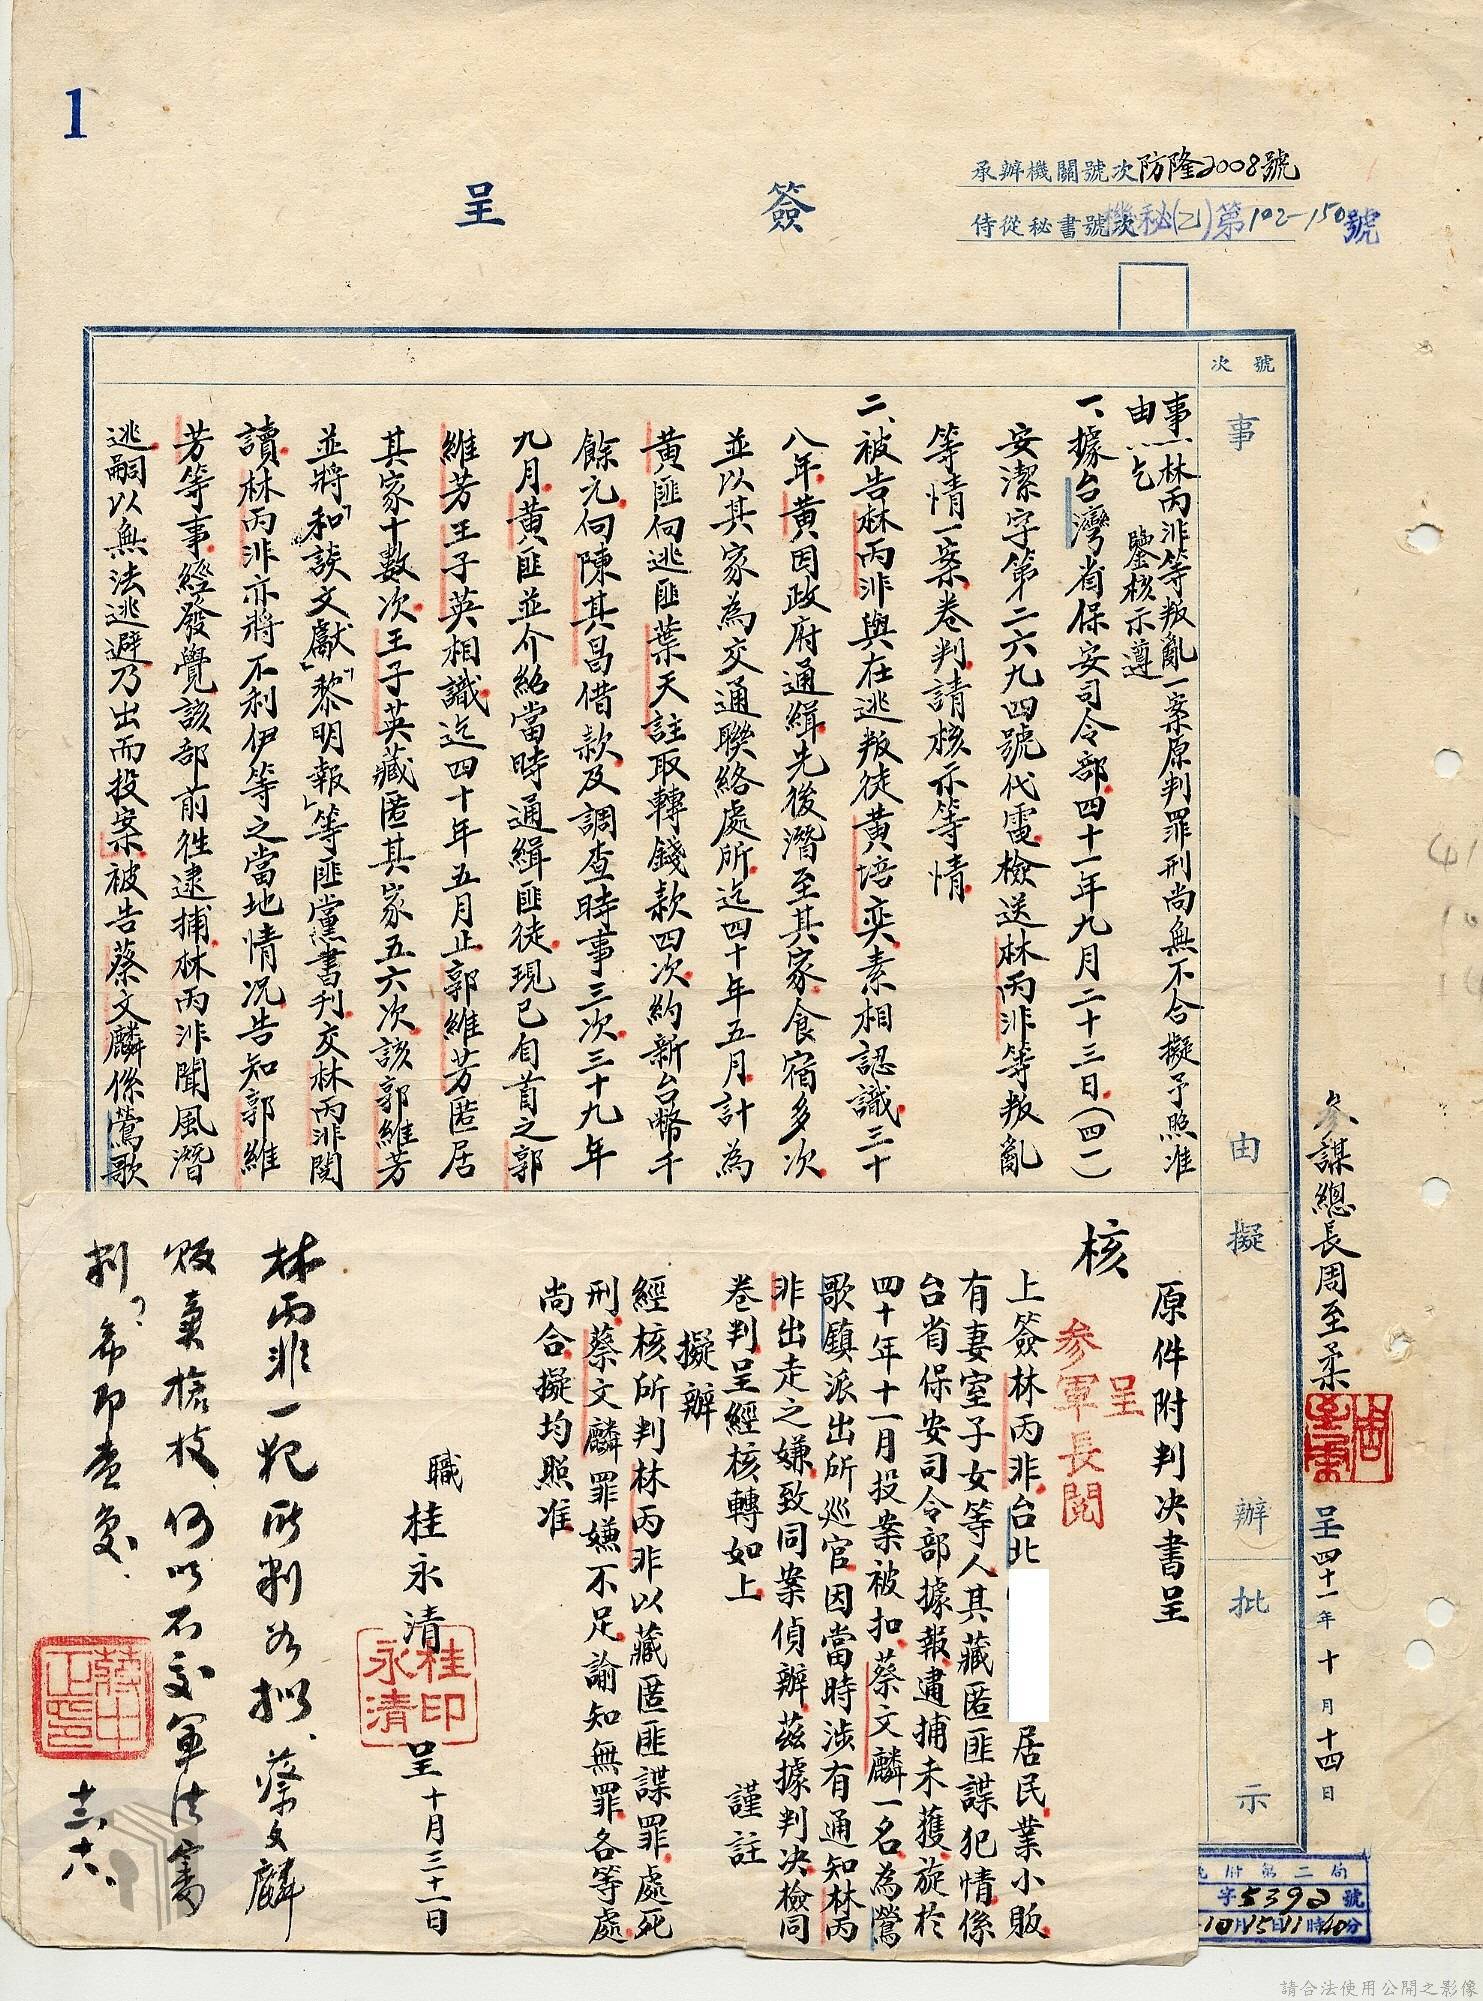 1
承辦機關號次防隆2008號
侍從秘書號次機秘(乙)第102-150號
簽呈
號次
事由擬辦批示
事由
林丙非等叛亂一案原判罪刑尚無不合擬予照准
乞
鑒核示遵
一、據台灣省保安司令部四十一年九月二十三日(四一)
安潔字第二六九四號代電檢送林丙非等叛亂
等情一案卷判請核示等情
二、被告林丙非與在逃叛徒黃培奕素相認識三十
八年黃因政府通緝先後潛至其家食宿多次
並以其家為交通聯絡處所迄四十年五月計為
黃匪向逃匪葉天註取轉錢款四次約新台幣千
餘元向陳其昌借款及調查時事三次三十九年
九月黃匪並介紹當時通緝匪徒現已自首之郭
維芳王子英相識迄四十年五月止郭維芳匿居
其家十數次王子英藏匿其家五六次該郭維芳
並將「和談文獻」「黎明報」等匪黨書刋交林丙非閱
讀林丙非亦將不利伊等之當地情況告知郭維
芳等事經發覺該部前往逮捕林丙非聞風潛
逃嗣以無法逃避乃出而投案被告蔡文麟係鶯歌
參謀總長周至柔
呈四十一年十月十四日
原件附判決書呈
核
呈
參軍長閱
上簽林丙非台北
居民業小販
有妻室子女等人其藏匿匪諜犯情係
台省保安司令部據報逋捕未獲旋於
四十年十一月投案被扣蔡文麟一名為鶯
歌鎮派出所巡官因當時涉有通知林丙
非出走之嫌致同案偵辦茲據判決檢同
卷判呈經核轉如上
謹註
擬辦
經核所判林丙非以藏匿匪諜罪處死
刑蔡文麟罪嫌不足諭知無罪各等處
尚合擬均照准
職桂永清
桂永清印
呈十月三十一日
林丙非一犯所判如擬、蔡文麟
販賣槍枝、何以不交軍法審
判?希即查复、
蔣中正印
十一、六、
第二局
字5392號
10月15日11時40分
請合法使用公開之影像